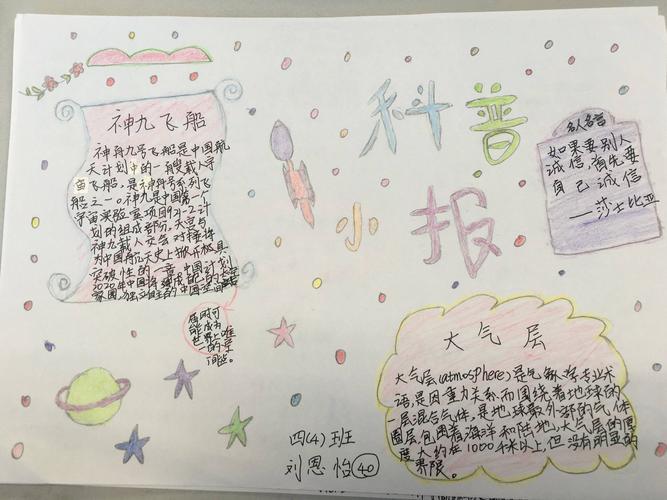 科普
小报
神九飞船
神舟九号飞船是中国航
天计划中的一艘载人宇
宙飞船,是神舟号系列飞
船之一。神九是中国第一个
宇宙实验室项目921-2计
划的组成部分,天宫与
神九载人交会对接将
为中国航天史上掀开极具
突破性的一章。中国计划
2020年中国将建成自己的太空
家园,独立自主的中国空间站
届时可
能成为
世界上唯
一的空
间站。
名人名言
如果要别人
诚信,首先要
自己诚信
——莎士比亚
大气层
大气层(atmosphere)是气象学专业术
语,是因重力关系而围绕着地球的
一层混合气体,是地球最外部的气体
圈层,包围着海洋和陆地,大气层的厚
度大约在1000千米以上,但没有明显的
界限。
四(4)班
刘恩怡 40